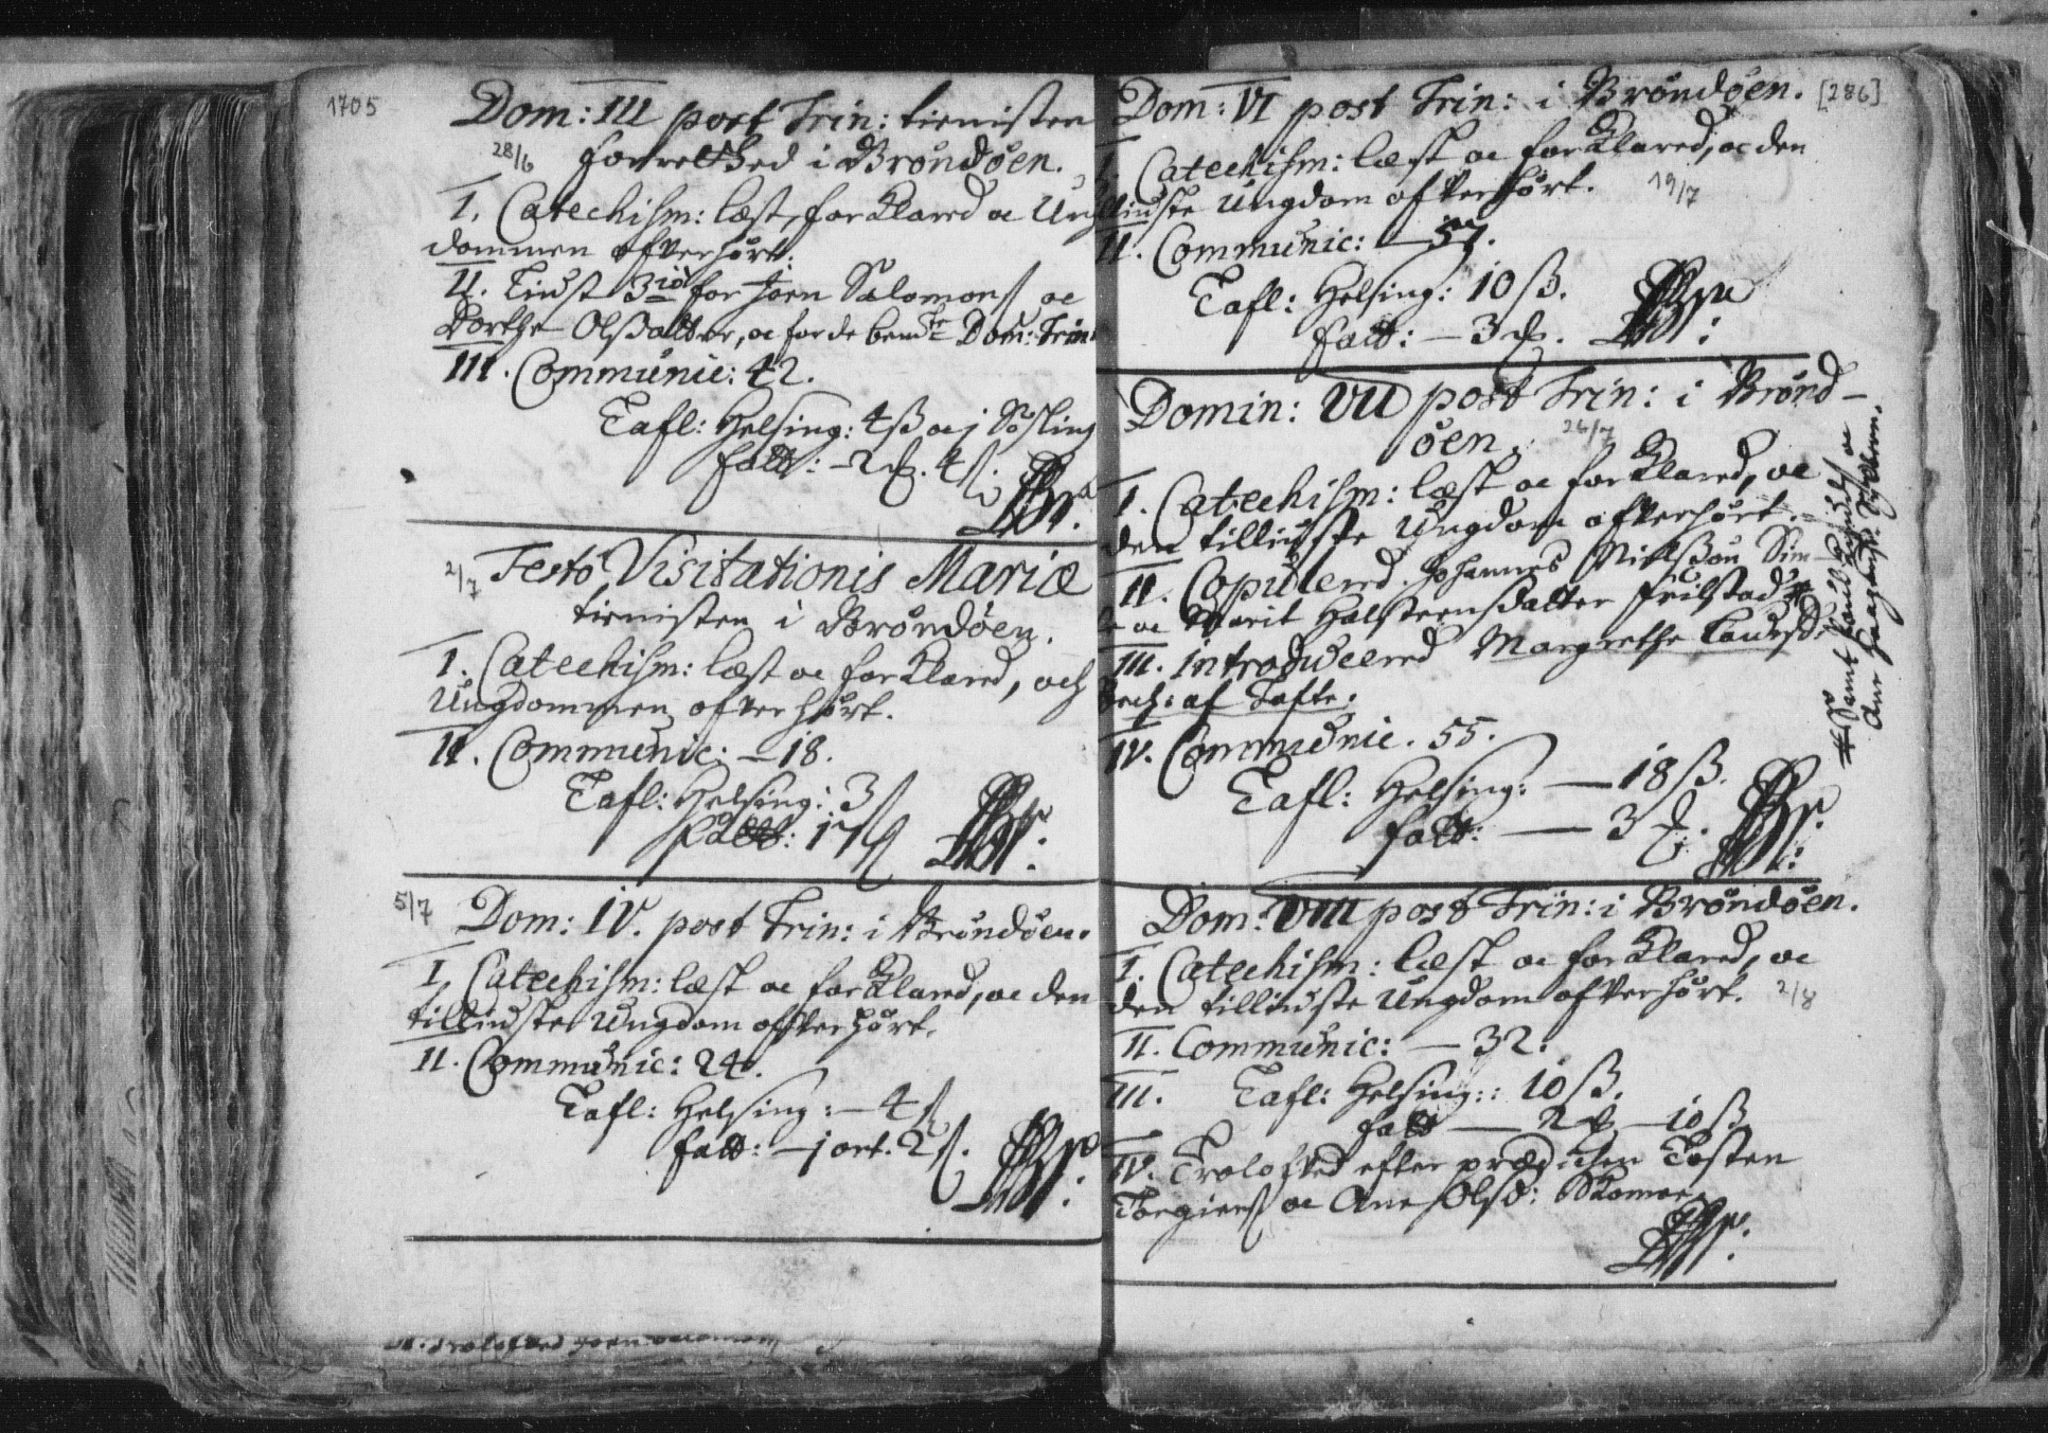 1705
Dom: III post Trin: tienisten
28/6 forretted i Brøndøen.
I. Catechism: læst, forklared oc Ung
dommen ofverhørt.
II. Liust 3io for Joen Salomons oc
Dorthe Olsdatter, oc for de bemte Dom: Trin:
III. Communic: 42.
Tafl: Helsing: 4 ß oc j Søsling
fatt: - 2 4 ß.
2/7 Festo Visitationis Mariæ
tienisten i Brøndøen.
I. Catechism: læst oc forklared, och
Ungdommen ofverhørt.
II. Communic: - 18.
Tafl: Helsing: 3 ß
fatt: 17 ß
5/7 Dom: IV. post Trin: i Brøndøen.
I. Catechism: læst oc forklared, oc den
tilliuste Ungdom ofverhørt.
II. Communic: 24.
Tafl: Helsing: - 4 ß
fatt: - j ort. 2 ß.
Trolofved Joen Salomons
Dom: VI post Trin: i Brøndøen. [286]
I. Catechism: læst oc forklared, oc den
liuste Ungdom ofverhørt. 19/7
II. Communic: - 57.
Tafl: Helsing: 10 ß.
fatt: - 3
Domin: VII post Trin: i Brønd-
øen. 26/7
I. Catechism: læst oc forklared, oc
den tilliuste Ungdom ofverhørt.
II. Copulered. Johannes Nielsøn
oc Marit Halsteensdatter Frilstad #
III. introduceered Margrethe Lauesd:
Bech: af Tofte.
IV. Communic. 55.
Tafl: Helsing: - 18 ß.
fatt: - 3
# Samt oc
Ane
Dom: VIII post Trin: i Brøndøen.
I. Catechism: læst oc forklared, oc
den tilliuste Ungdom ofverhørt. 2/8
II. Communic: - 32.
III. Tafl: Helsing:: 10 ß.
fatt - 2 - 10 ß
IV. Trolofved efter prædichen Tosten
Torgiers oc Ane Olsd: